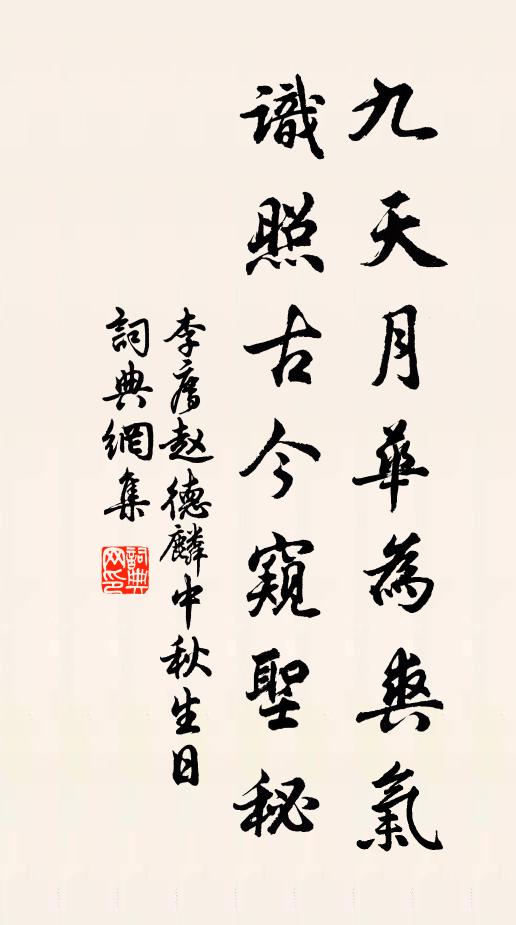 九天月華為爽氣
識照古今窺聖秘
李廌趙德麟中秋生日
詞典網集
詞典網印